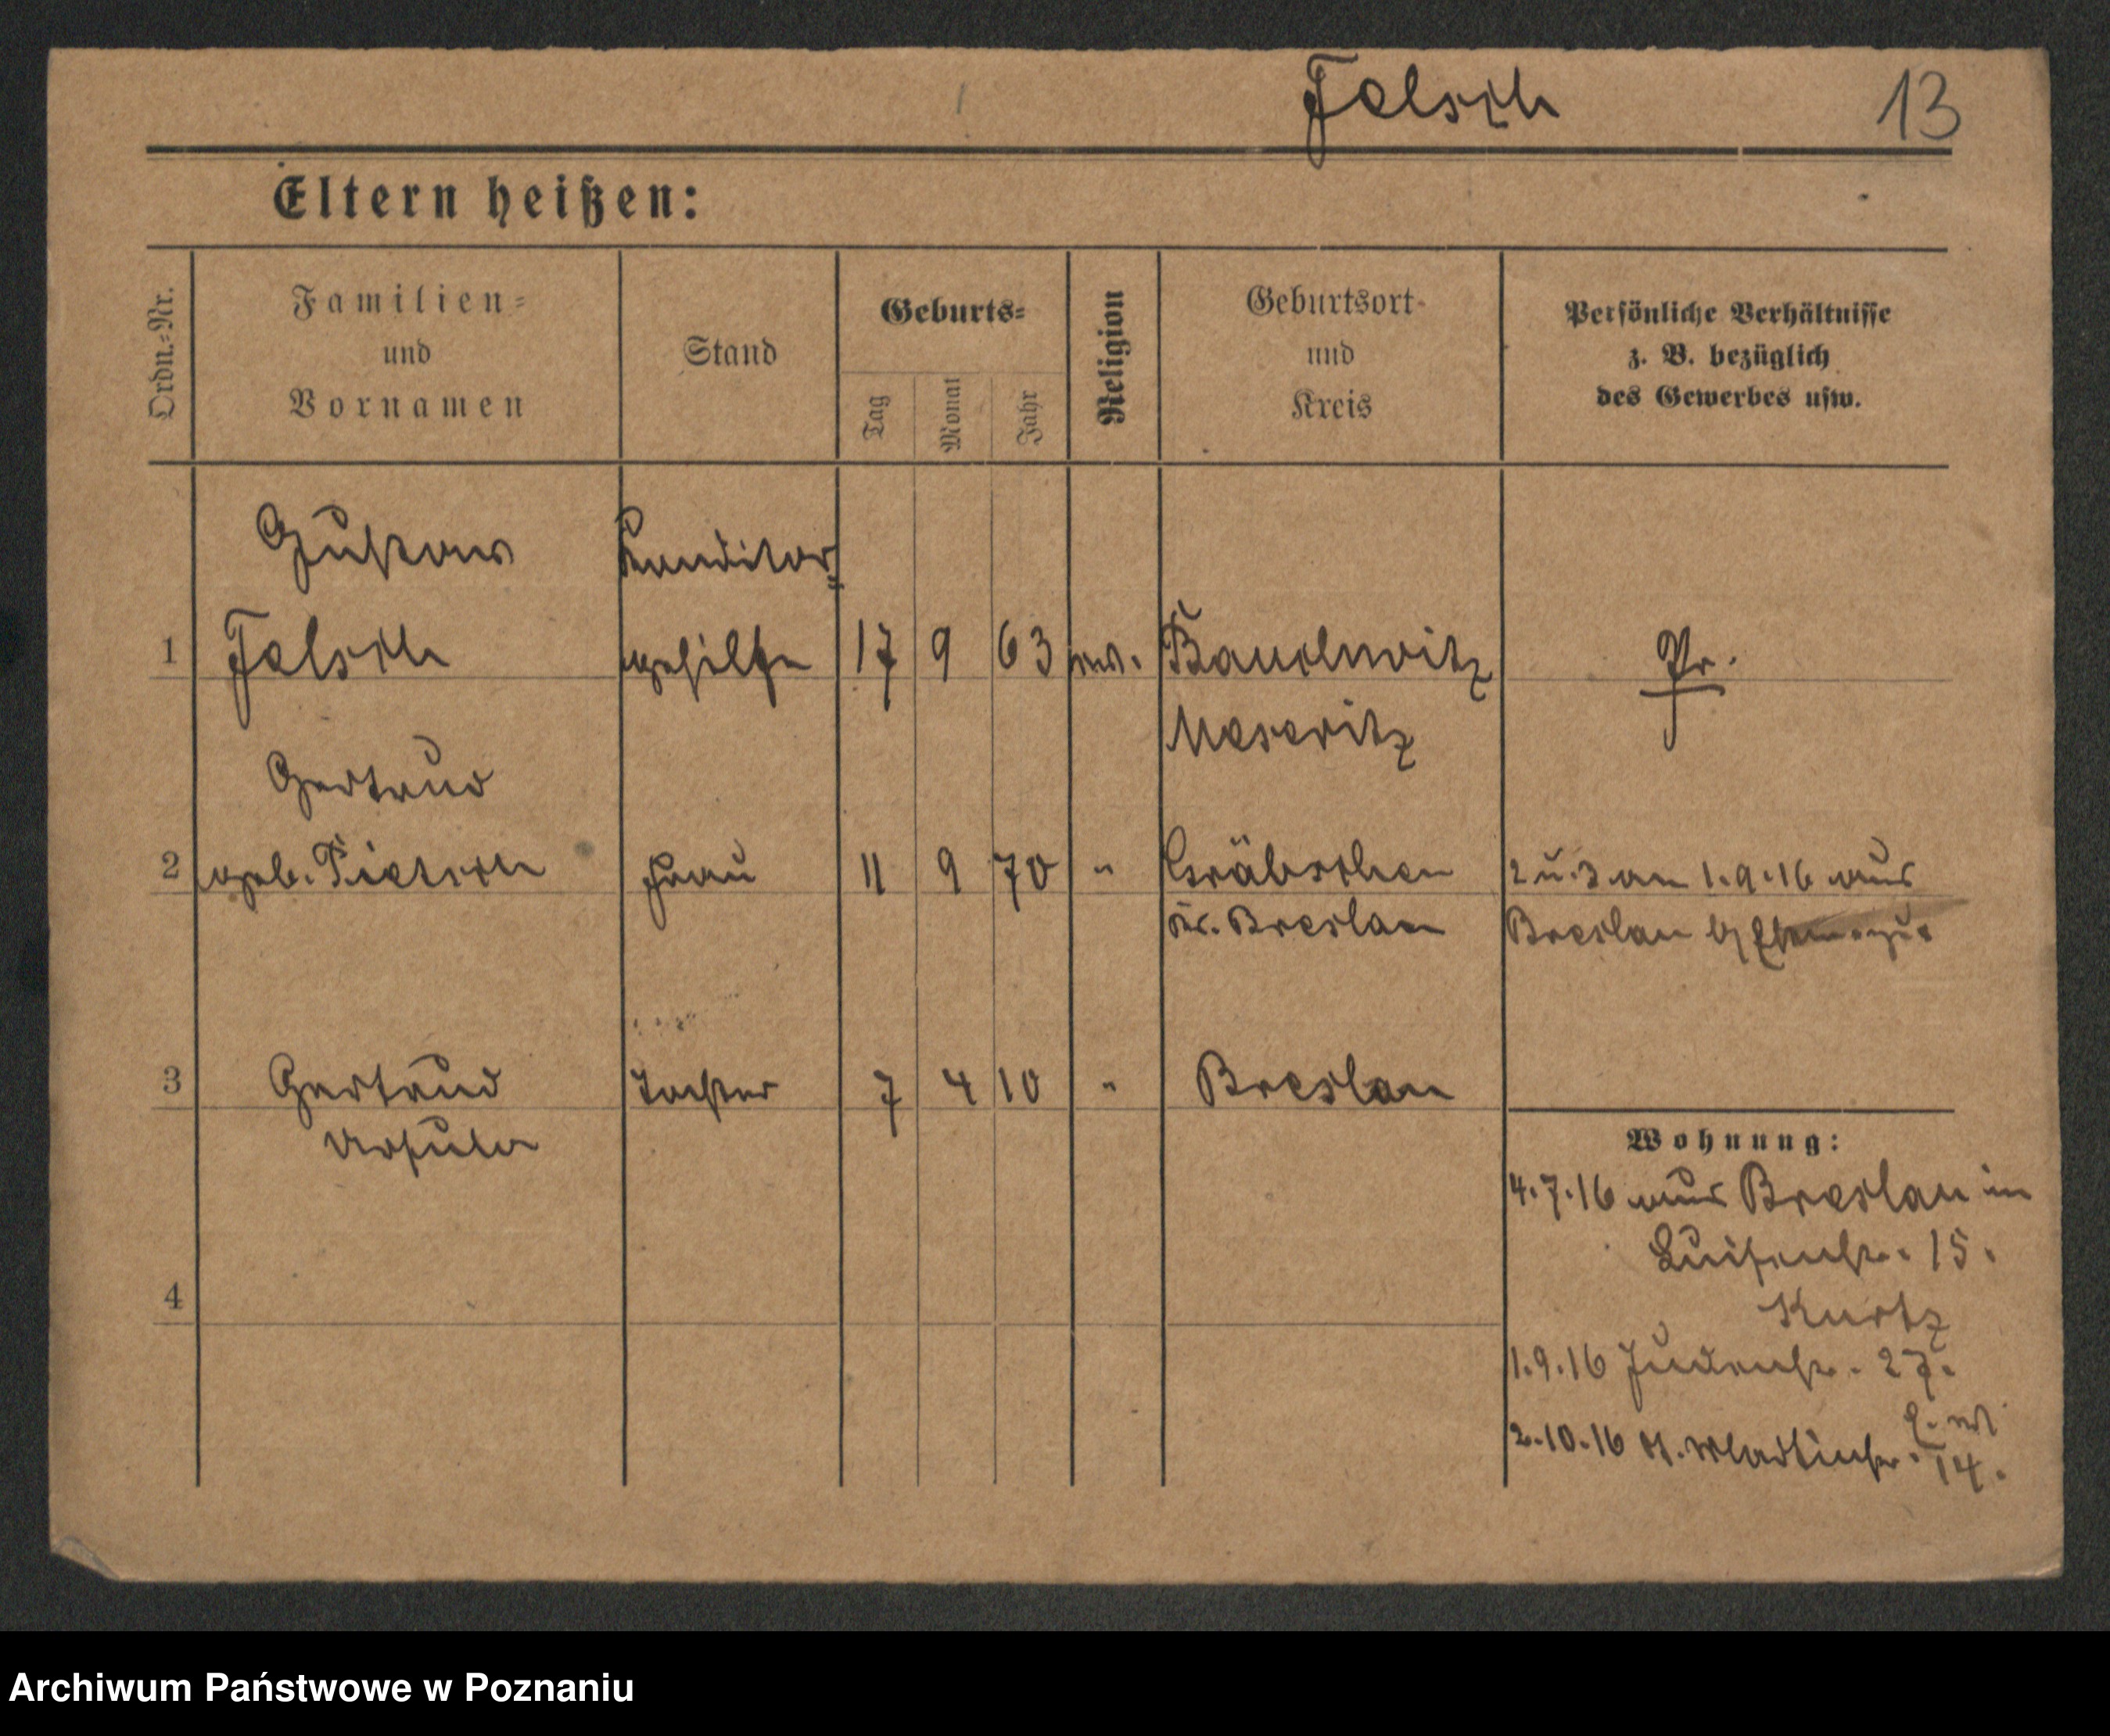 Felsch 13
Eltern heißen:
Ordn.-Nr.
Familien-
und
Vornamen
Stand
Geburts-
Tag
Monat
Jahr
Religion
Geburtsort
und
Kreis
Persönliche Verhältnisse
z. B. bezüglich
des Gewerbes usw.
Gustav Konditor-
1 Felsch gehilfe 17 9 63 ev. Bauchwitz Pr.
Meseritz
Gertrud
2 geb. Pietsch Frau 11 9 70 " Gräbschen 2 u. 3 am 1.9.16 aus
Kr. Breslau Breslau
3 Gertrud Tochter 7 4 10 " Breslau
Ursula
Wohnung:
4.7.16 aus Breslau in
Luisenstr. 15.
Kurtz
4
1.9.16 Judenstr. 27.
2.10.16 14.
Archiwum Państwowe w Poznaniu